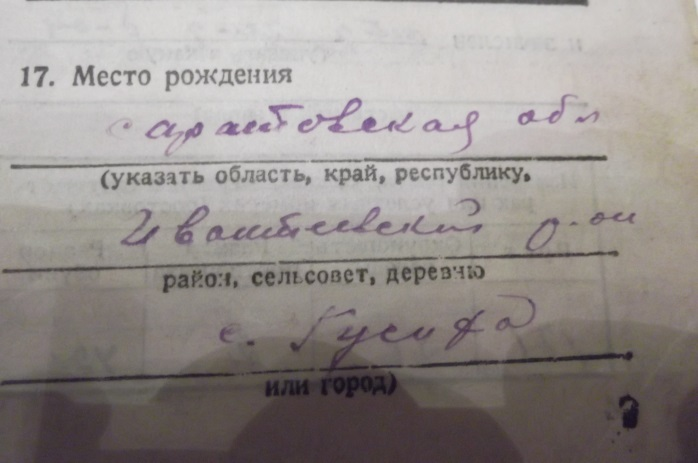 17. Место рождения
Саратовская обл
(указать область, край, республику,
Ивантеевский р-он
район, сельсовет, деревню
с. Гусиха
или город)